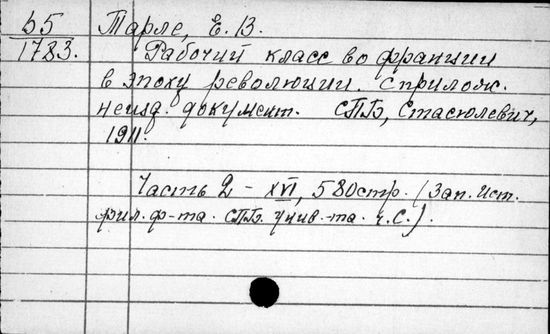 b5
1783.
Тарле, Е. В.
Рабочий класс во франции
в эпоху революции. с прилож.
неизд. документ. СПБ, Стасюлевич,
1911.
Часть 2 - XVI, 580 стр. (Зап. Ист.
фил. ф-та. СПБ. унив-та. ч. С.).